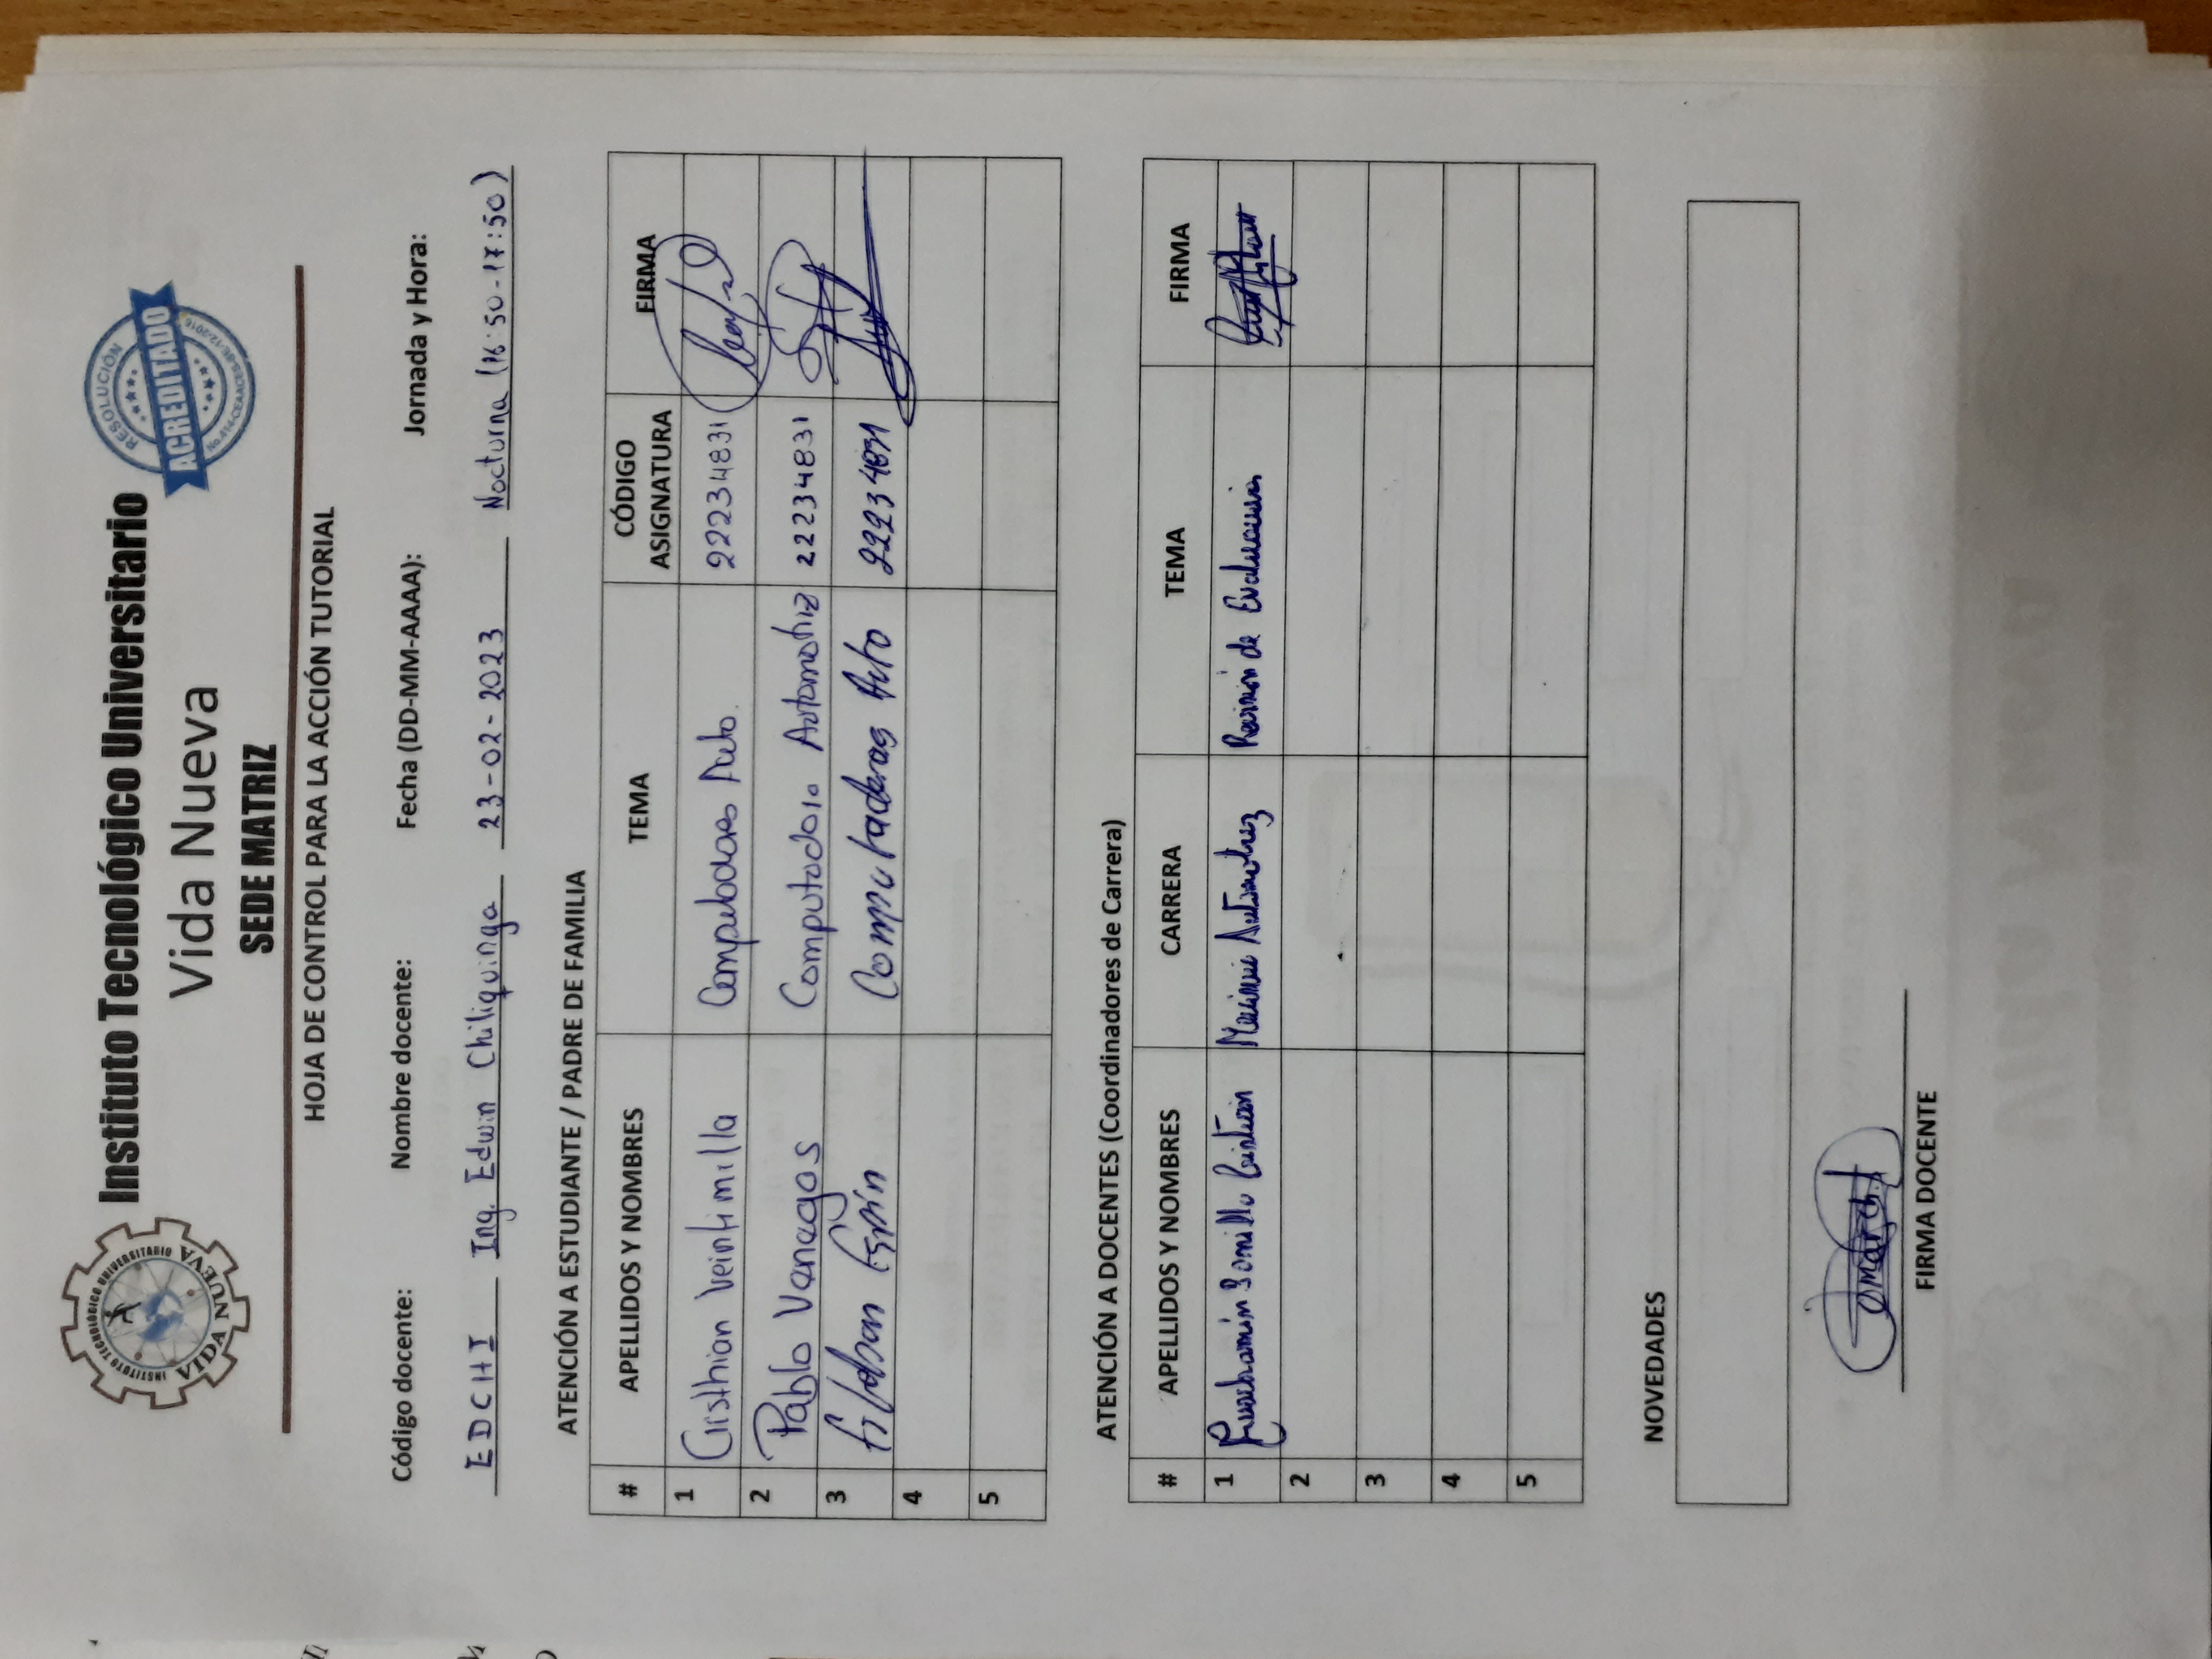 INSTITUTO TECNOLÓGICO UNIVERSITARIO
VIDA NUEVA
Instituto Tecnológico Universitario
Vida Nueva
SEDE MATRIZ
RESOLUCIÓN
ACREDITADO
HOJA DE CONTROL PARA LA ACCIÓN TUTORIAL
Código docente: Nombre docente: Fecha (DD-MM-AAAA): Jornada y Hora:
EDCHI Ing. Edwin Chiliquinga 23-02-2023 Nocturna (16:50-17:50)
ATENCIÓN A ESTUDIANTE / PADRE DE FAMILIA
# APELLIDOS Y NOMBRES TEMA CÓDIGO ASIGNATURA FIRMA
1 Cristhian Veintimilla Computadores Auto. 22234831
2 Pablo Vanegas Computadora Automotriz 22234831
3 Espín Computadoras Auto 22234831
4
5
ATENCIÓN A DOCENTES (Coordinadores de Carrera)
# APELLIDOS Y NOMBRES CARRERA TEMA FIRMA
1 Guachamín Bonilla Cristian Mecánica Automotriz Revisión de
2
3
4
5
NOVEDADES
FIRMA DOCENTE